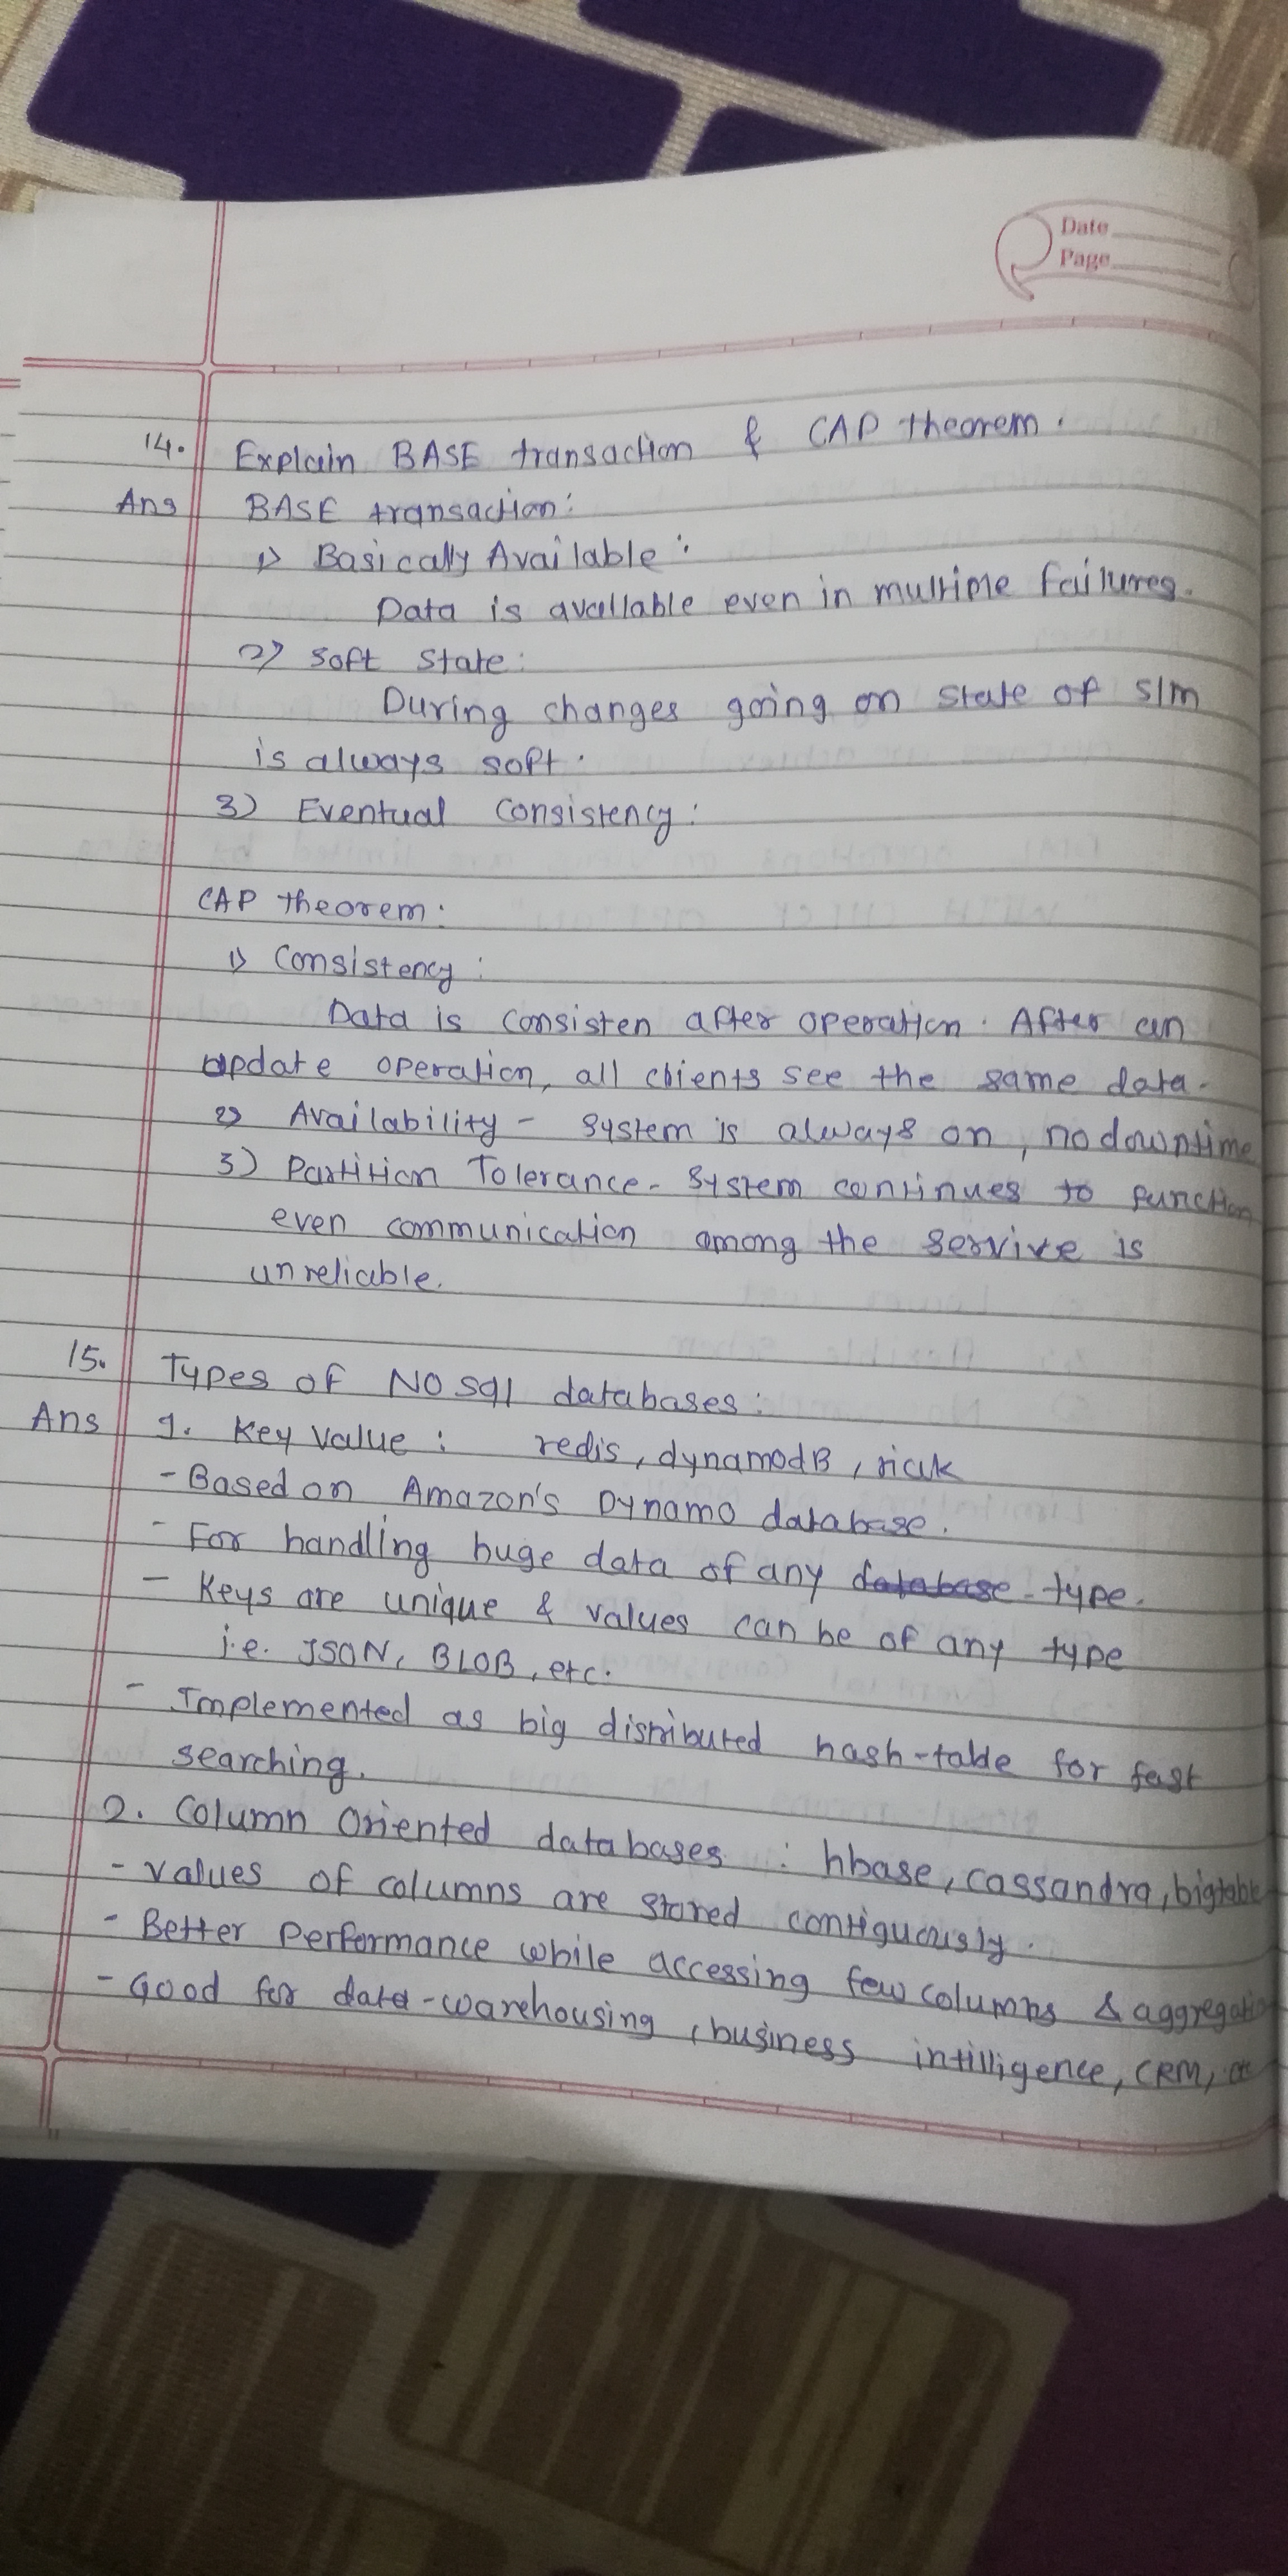 Date
Page
14. Explain BASE transaction & CAP theorem.
Ans BASE transaction:
1) Basically Available:
Data is available even in multiple failures.
2) soft state:
During changes going on state of s/m
is always soft.
3) Eventual Consistency:
CAP theorem:
1) Consistency:
Data is consisten after operation. After an
update operation, all clients see the same data.
2) Availability - System is always on, no downtime
3) Partition Tolerance - System continues to function
even communication among the servive is
unreliable.
15. Types of NO sql databases:
Ans 1. Key value: redis, dynamodB, riak
- Based on Amazon's Dynamo database.
- For handling huge data of any database type.
- Keys are unique & values can be of any type
i.e. JSON, BLOB, etc.
- Implemented as big distributed hash-table for fast
searching.
2. Column Oriented databases: hbase, cassandra, bigtable
- values of columns are stored contiguously.
- Better performance while accessing few columns & aggregatio
- Good for data-warehousing, business intilligence, CRM,